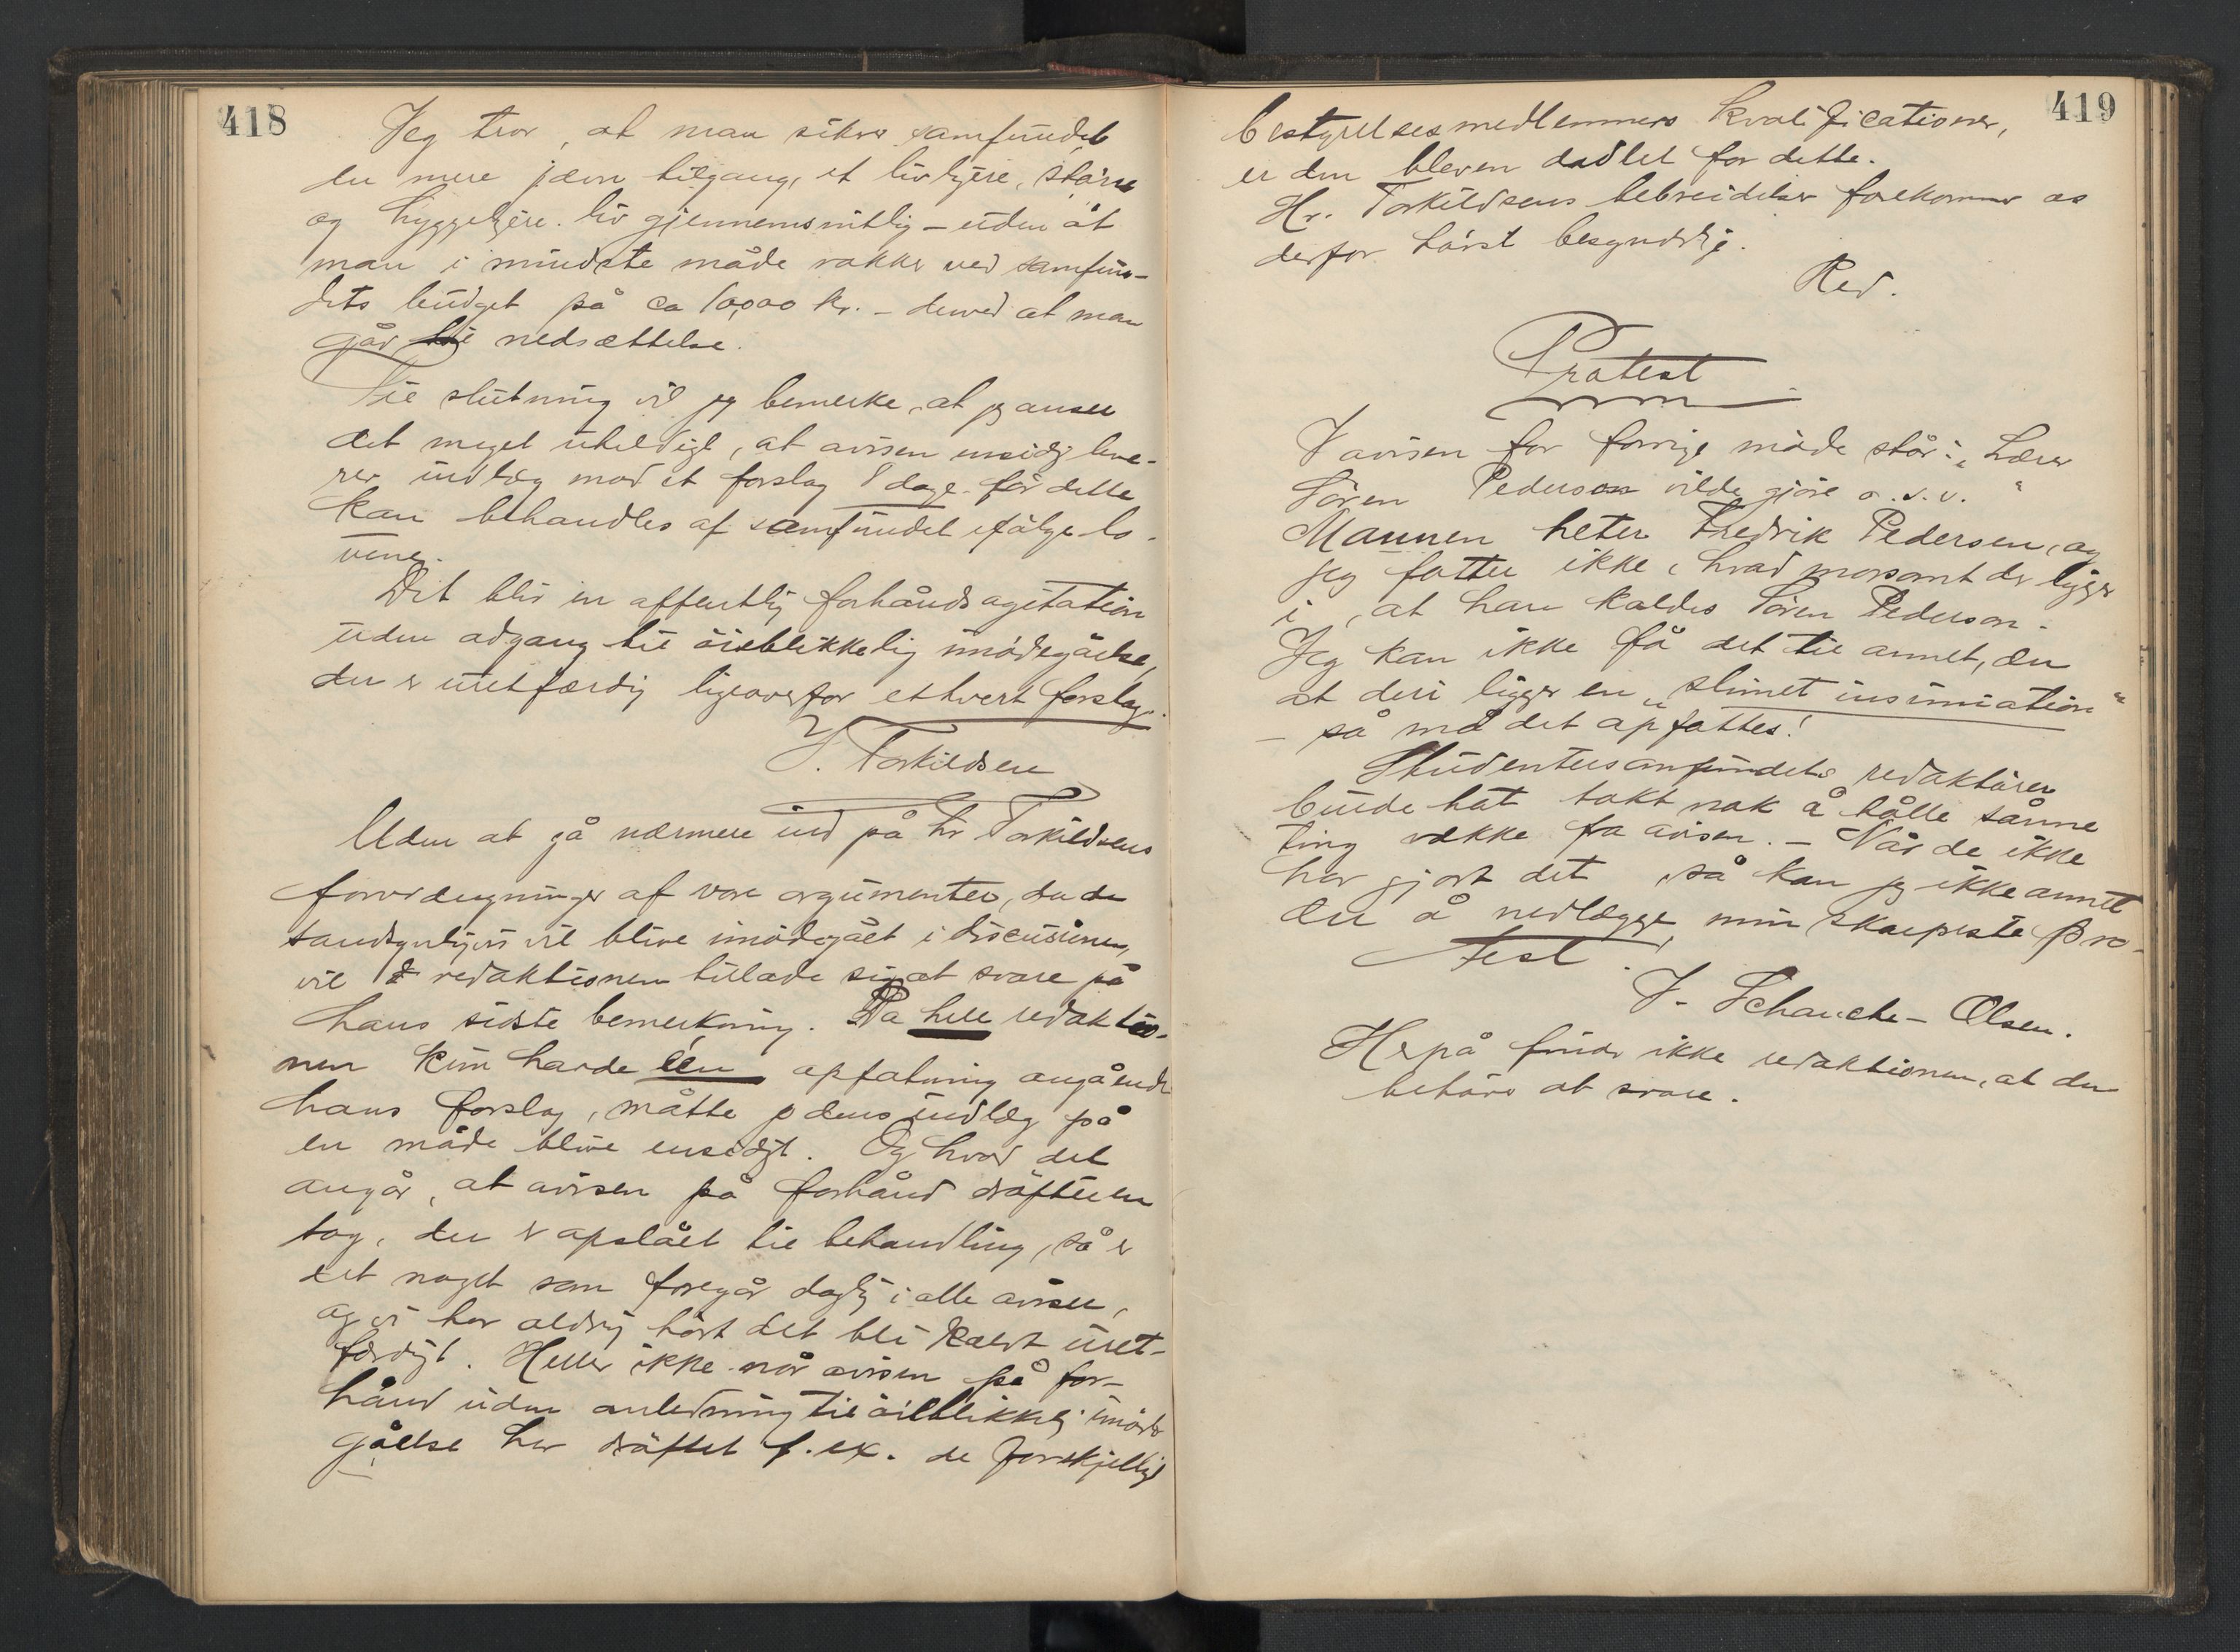 418
Jeg tror, at man sikrer samfundet
en mere jævn tilgang, et livligere, större
og hyggeligere liv gjennemsnitlig – uden at
man i mindste måde rokker ved samfun-
dets budget på ca 10,000 kr. – derved at man
går til nedsættelse.
Til slutning vil jeg bemerke, at jeg anser
det meget uheldigt, at avisen ensidig leve-
rer indlæg mod et forslag 8 dage för dette
kan behandles af samfundet ifölge lo-
vene.
Det blir en offentlig forhåndsagitation
uden adgang til öieblikkelig imödegåelse,
der er uretfærdig ligeoverfor ethvert forslag.
J. Torkildsen
Uden at gå nærmere ind på hr Torkildsens
forvrængninger af vore argumenter, da de
sandsynligvis vil blive imödegået i discusionen,
vil redaktionen tillade sig at svare på
hans sidste bemerkning. Da hele redaktio-
nen kun havde én opfatning angående
hans forslag, måtte jo dens indlæg på
en måde blive ensidigt. Og hvad det
angår, at avisen på forhånd dröfter en
sag, der er opslået til behandling, så er
det noget som foregår daglig i alle aviser,
og vi har aldrig hört det bli kaldt uret-
færdigt. Heller ikke når avisen på for-
hånd uden anledning til öieblikkelig imöde
gåelse har dröftet f. ex. de forskjellige
419
bestyrelsesmedlemmers kvalificationer,
er den bleven dadlet for dette.
Hr. Torkildsens bebreidelser forekommer os
derfor höist besynderlige.
Red.
Protest
I avisen for forrige möde står: „Lærer
Sören Pederson vilde gjöre o. s. v. “
Mannen heter Fredrik Pedersen, og
jeg fatter ikke, hvad morsomt der ligger
i, at han kaldes Sören Pederson.
Jeg kan ikke få det til annet, en
at deri ligger en „slimet insinuation“
– så må det opfattes!
Studentersamfundets redaktörer
burde hat takt nok å hålle sånne
ting vække fra avisen. – Når de ikke
har gjort det, så kan jeg ikke annet
en å nedlægge min skarpeste pro-
test.
J. Schanche-Olsen.
Herpå finder ikke redaktionen, at den
behöver at svare.